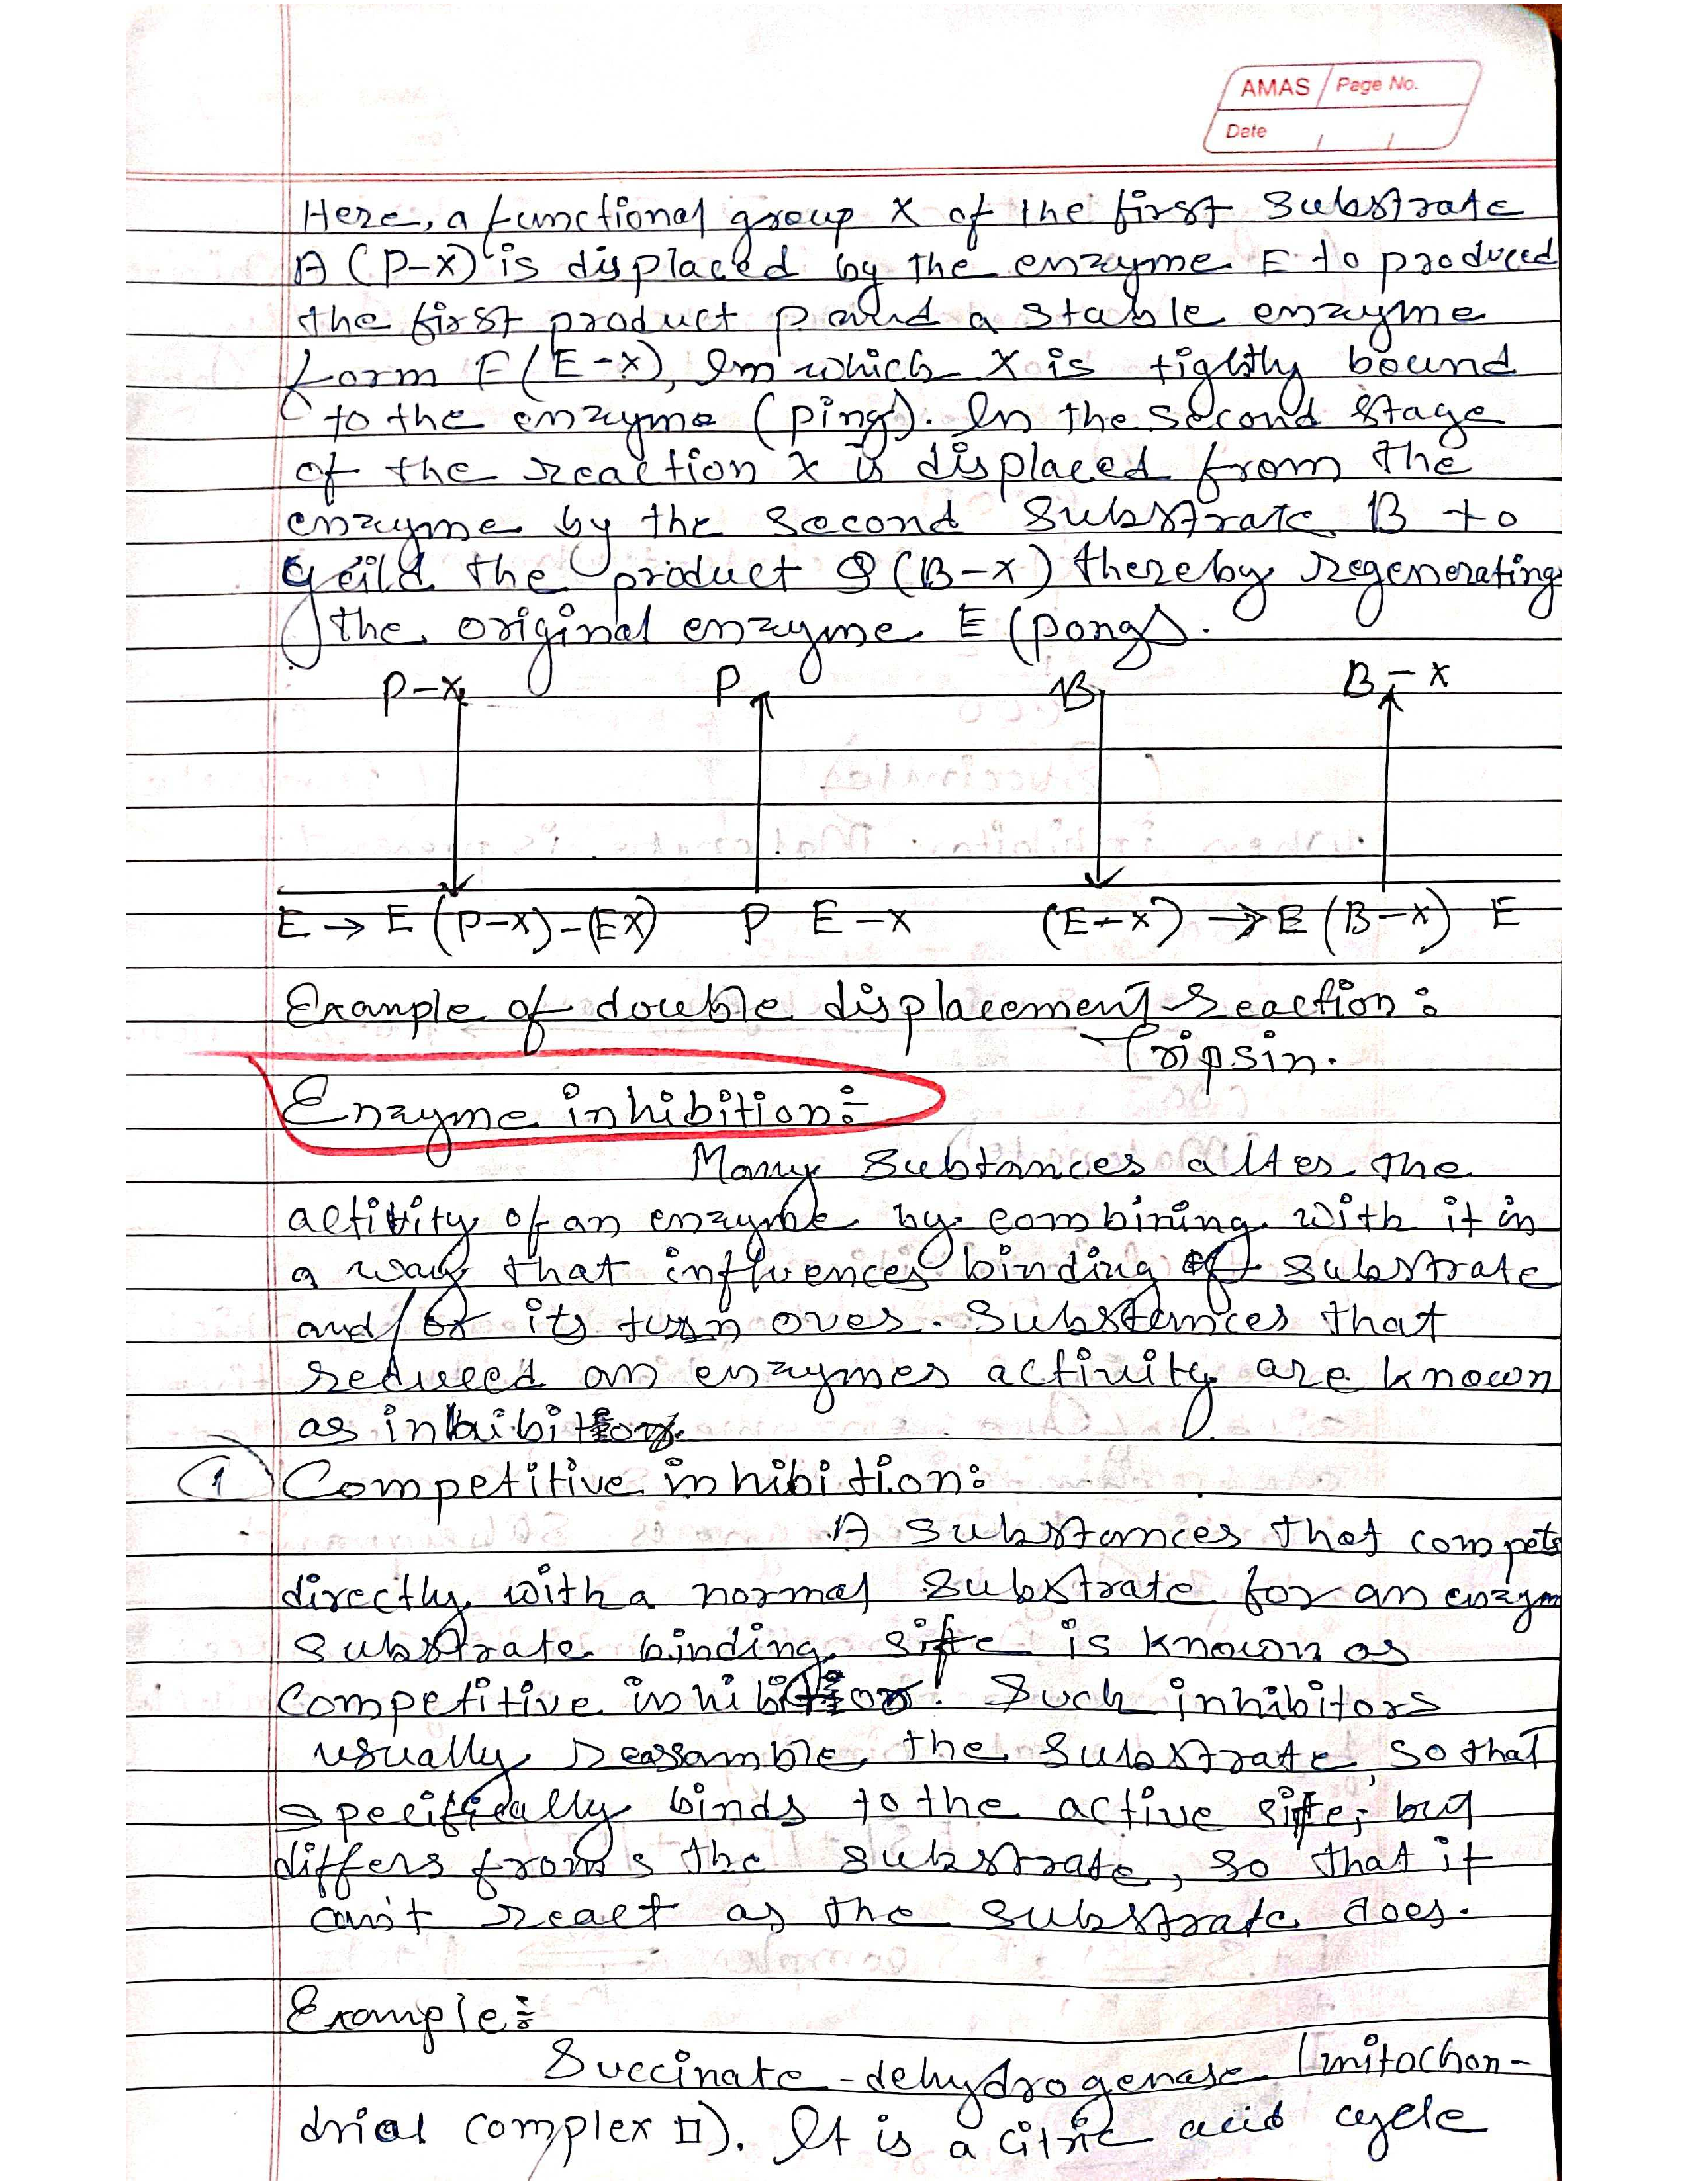 AMAS Page No.
Date / /
Here, a functional group X of the first substrate
A (P-X) is displaced by the enzyme E to produced
the first product P and a stable enzyme
form F (E-X), In which X is tightly bound
to the enzyme (ping). In the second stage
of the reaction X is displaced from the
enzyme by the second substrate B to
yeild the product Q (B-X) thereby regenerating
the original enzyme E (pong).
P-X P B B-X
E → E (P-X)-(EX) P E-X (E-X) → E (B-X) E
Example of double displacement reaction:
Tripsin.
Enzyme inhibition:
Many Subtances alter the
activity of an enzyme by combining with it in
a way that influences binding of substrate
and/or its turn over. Substances that
reduced an enzymes activity are known
as inhibitors.
① Competitive inhibition:
A substances that compete
directly with a normal substrate for an enzym
substrate binding site is known as
Competitive inhibitor. Such inhibitors
usually reassamble the substrate, so that
specifically binds to the active site, but
differs from the substrate, so that it
can't react as the substrate does.
Example:
Succinate-dehydrogenase (mitochon-
drial complex II). It is a citric acid cycle